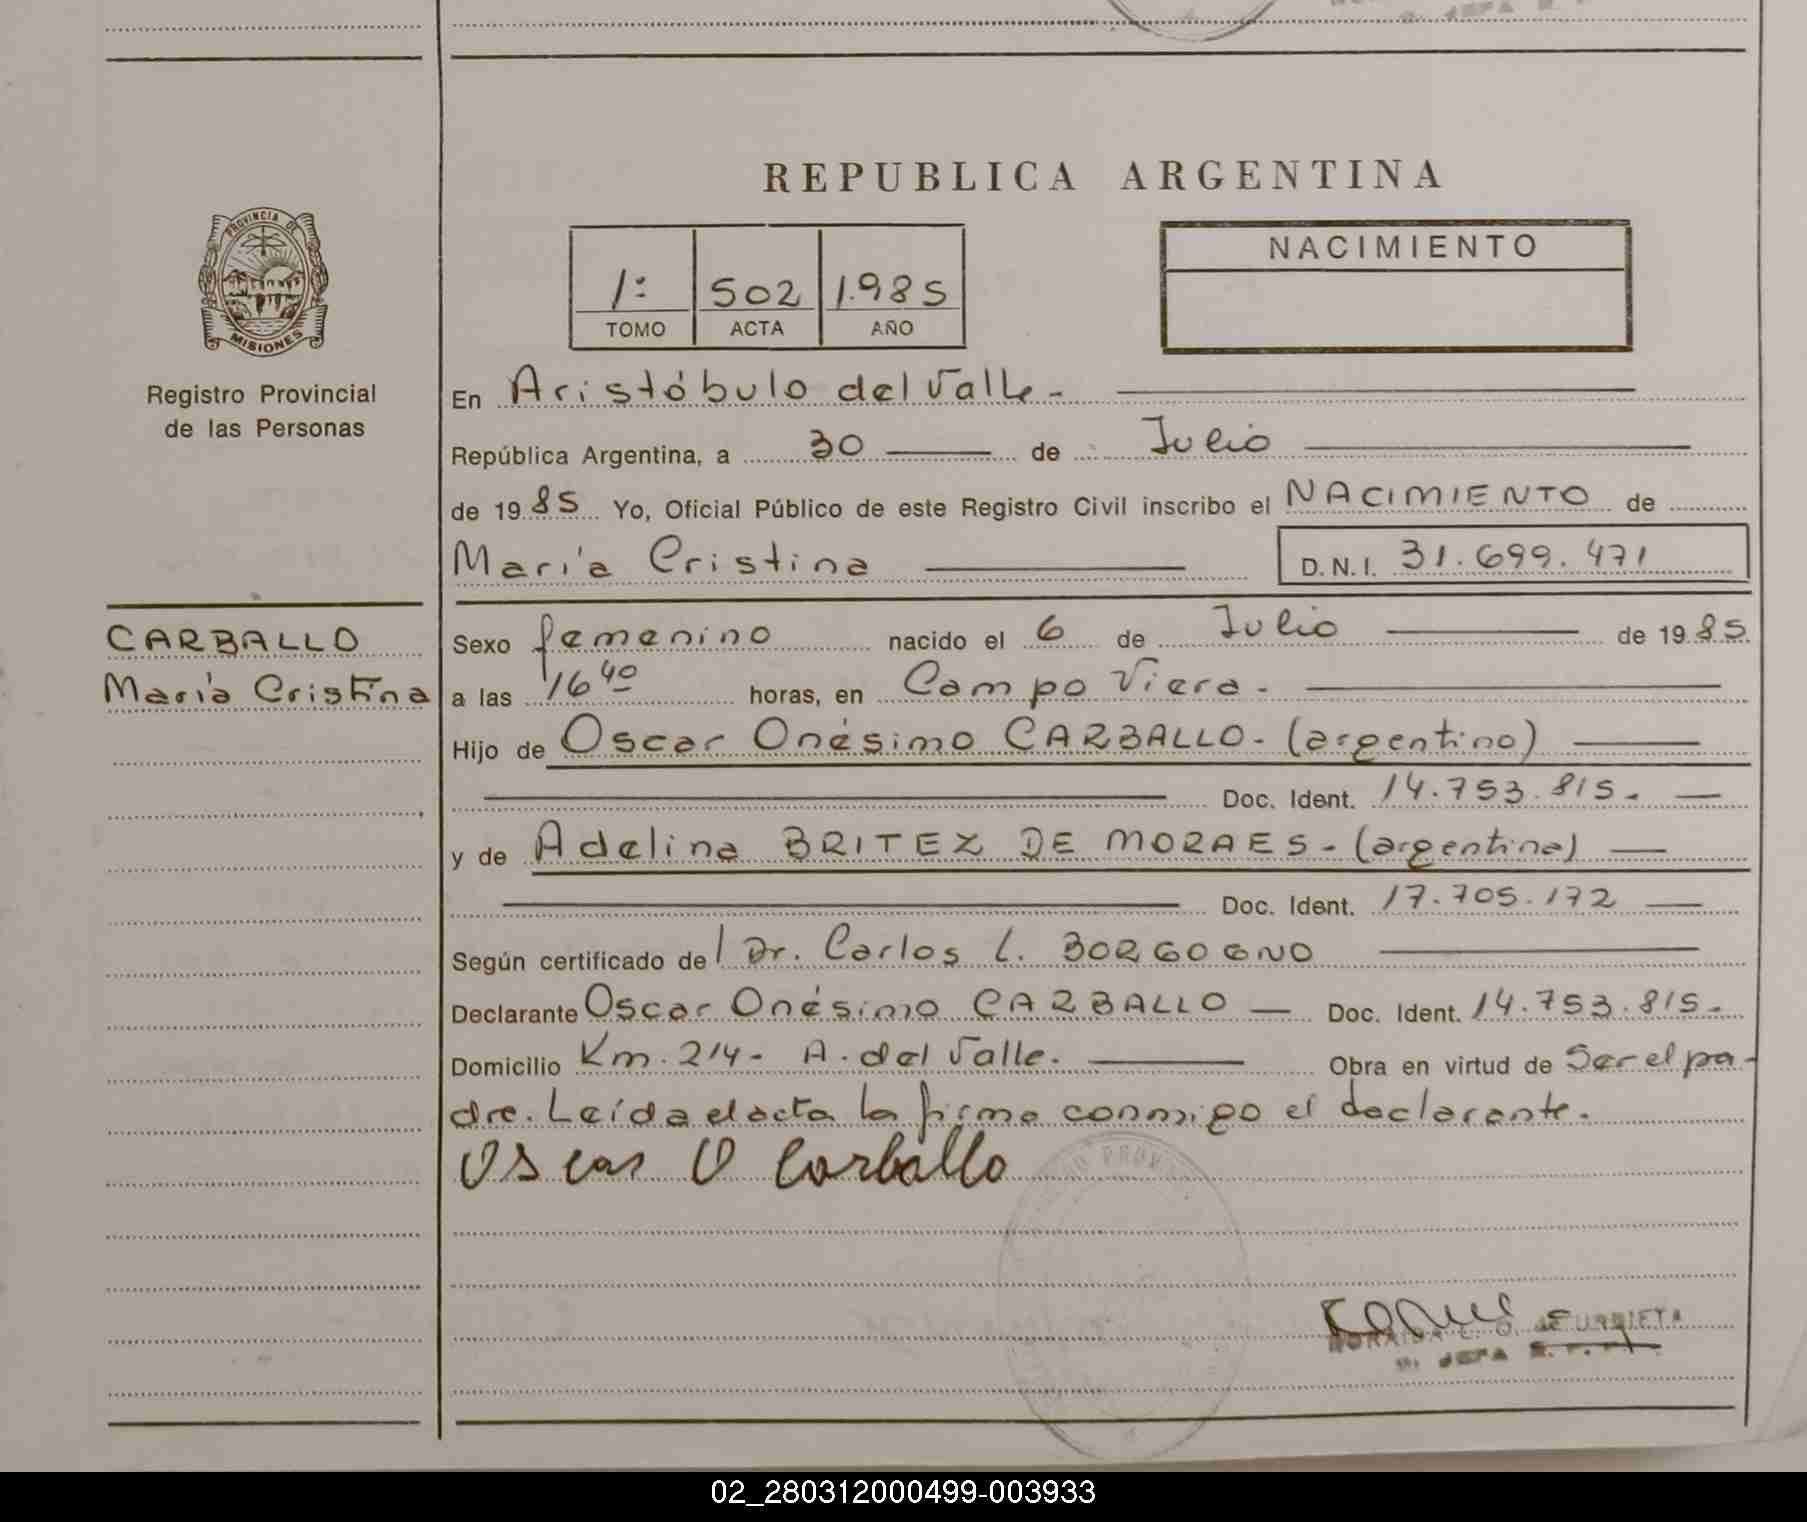 REPUBLICA ARGENTINA
PROVINCIA DE
MISIONES
Registro Provincial
de las Personas
1º 502 1.985
TOMO ACTA AÑO
NACIMIENTO
En Aristóbulo del Valle.-
República Argentina, a 30 de Julio
de 1985 Yo, Oficial Público de este Registro Civil inscribo el NACIMIENTO de
María Cristina D.N.I. 31.699.471
CARBALLO
María Cristina
Sexo femenino nacido el 6 de Julio de 1985
a las 16 40 horas, en Campo Viera.-
Hijo de Oscar Onésimo CARBALLO.- (argentino)
Doc. Ident. 14.753.815.-
y de Adelina BRITEZ DE MORAES.- (argentina)
Doc. Ident. 17.705.172
Según certificado de l Dr. Carlos L. BORGOGNO
Declarante Oscar Onésimo CARBALLO Doc. Ident. 14.753.815.-
Domicilio Km. 214- A. del Valle. Obra en virtud de Ser el pa-
dre. Leída el acta la firma conmigo el declarante.
Oscar O Carballo
DE URRIETA
JEFA
02_280312000499-003933